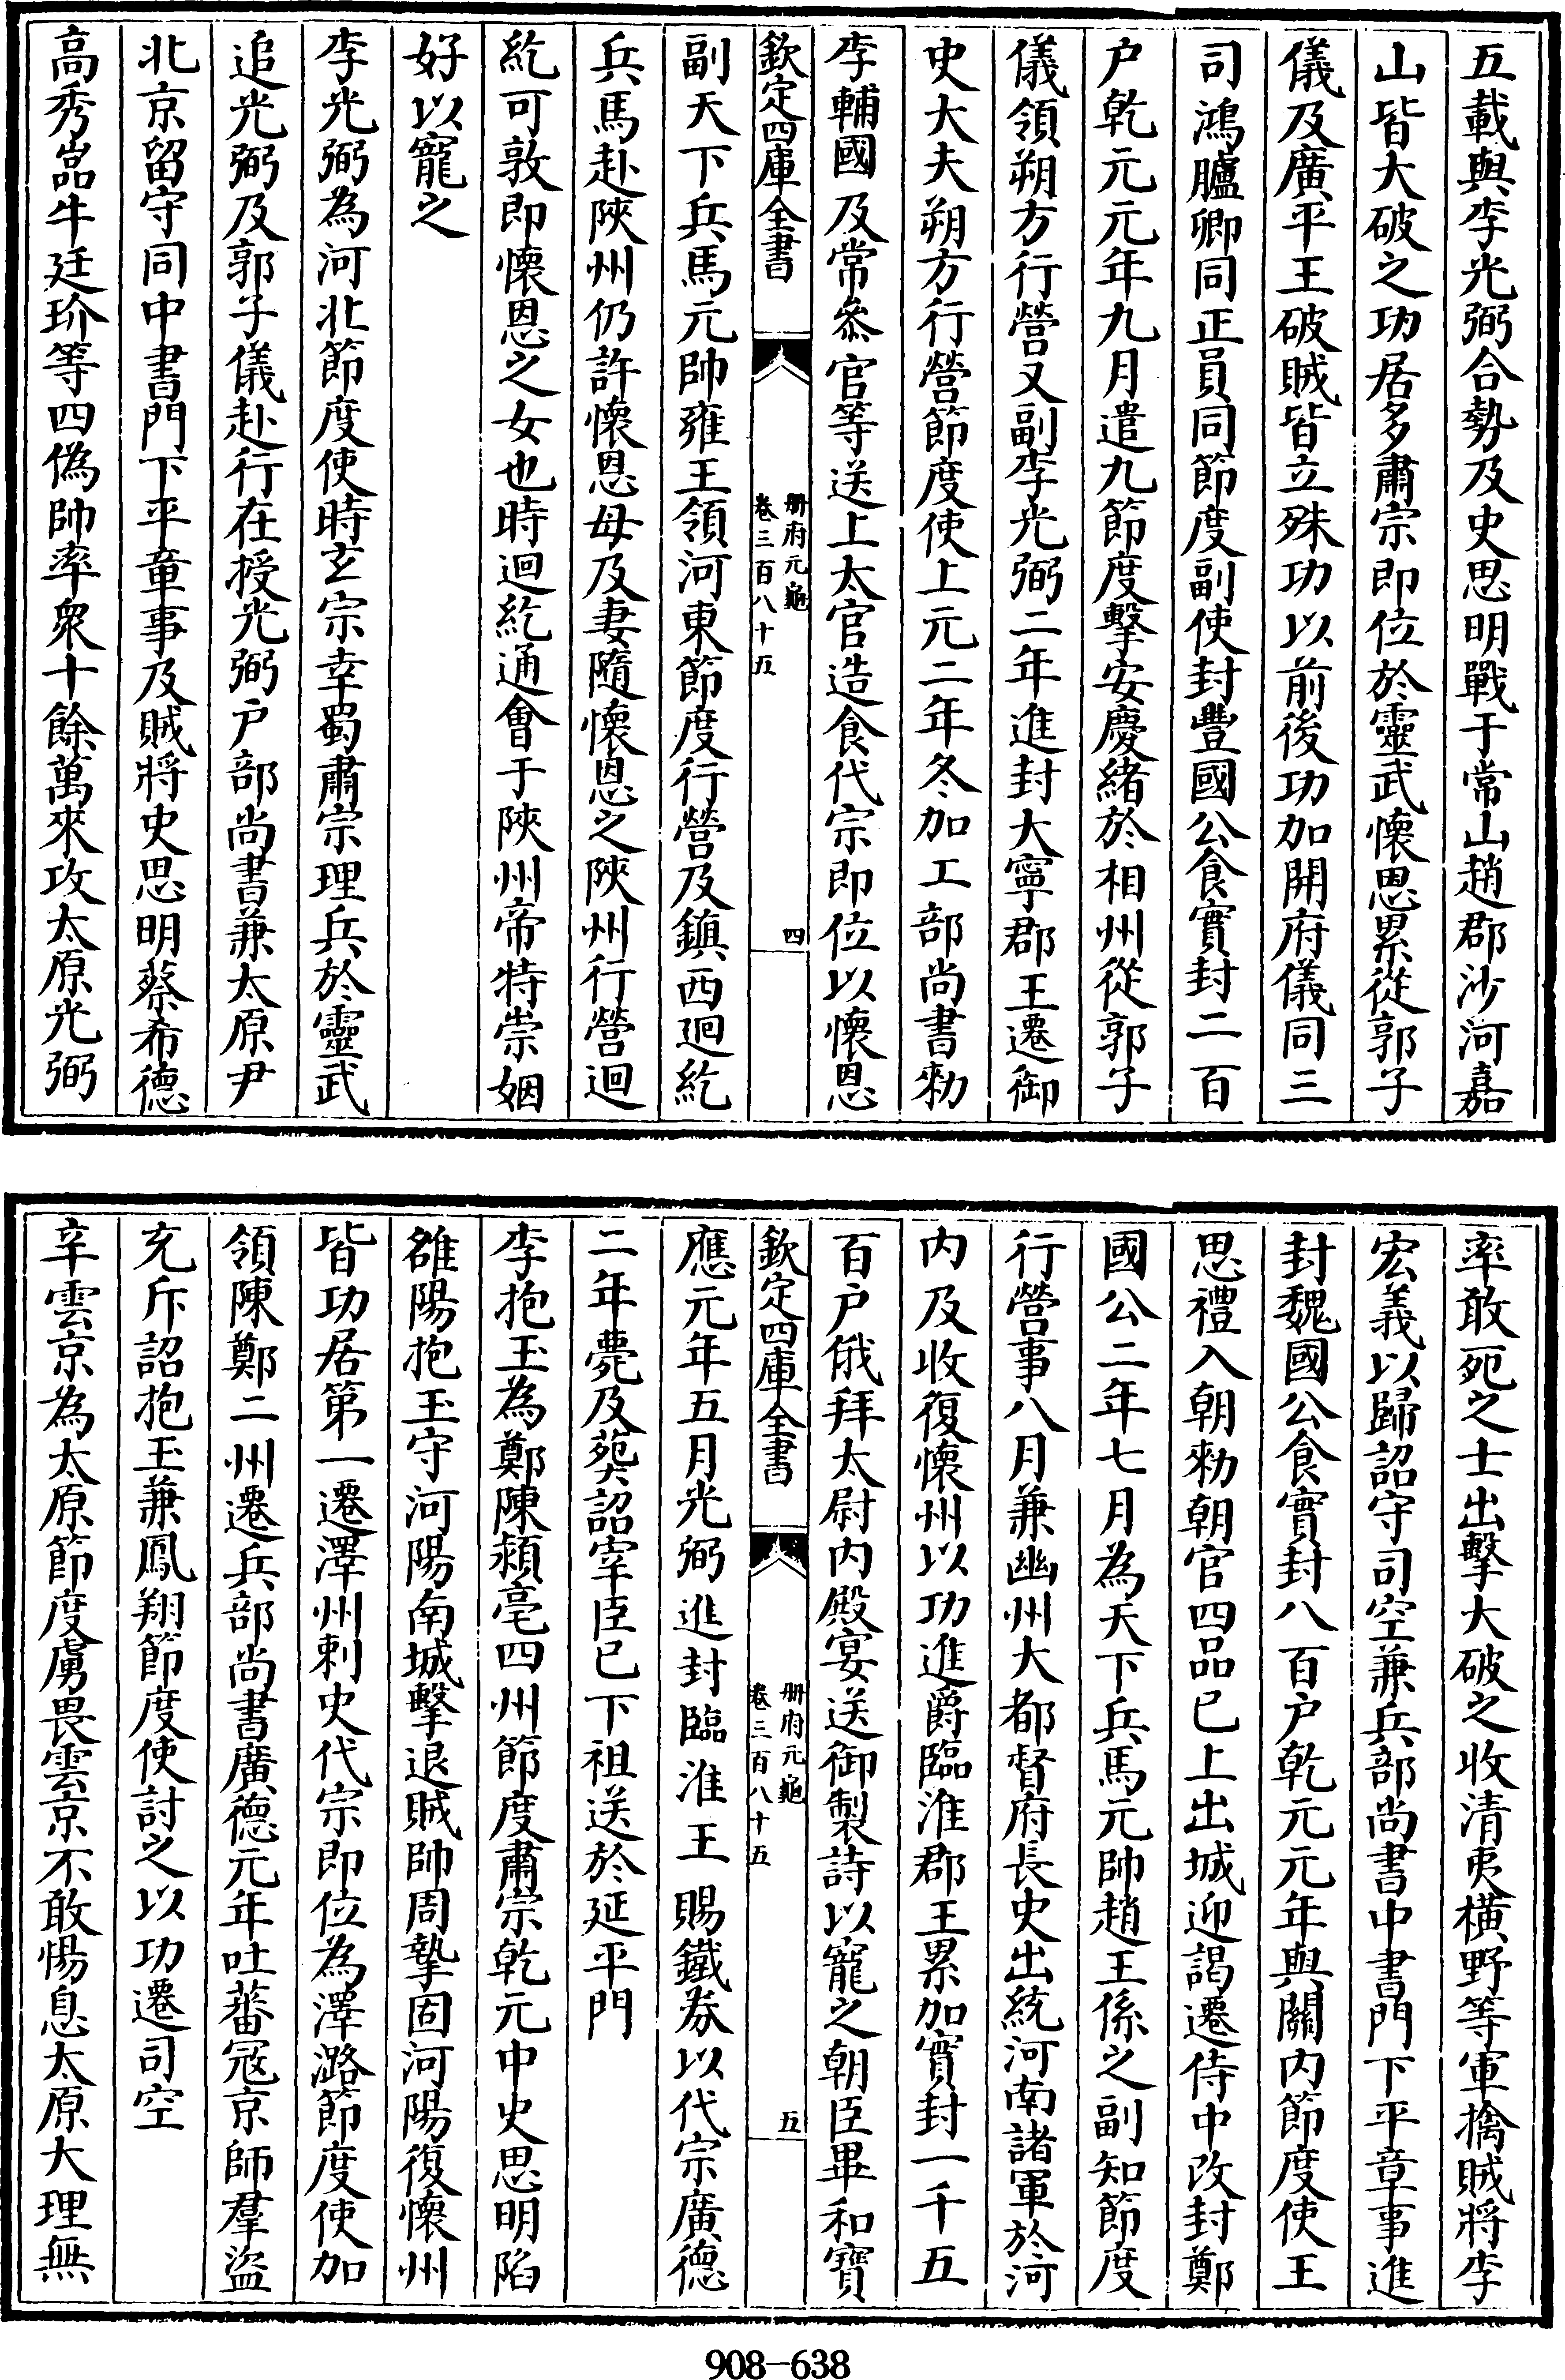 五載與李光弼合勢及史思明戰于常山趙郡沙河嘉
山皆大破之功居多肅宗即位於靈武懷恩累從郭子
儀及廣平王破賊皆立殊功以前後功加開府儀同三
司鴻臚卿同正員同節度副使封豐國公食實封二百
户乾元元年九月遣九節度擊安慶緒於相州從郭子
儀領朔方行營又副李光弼二年進封大寧郡王遷御
史大夫朔方行營節度使上元二年冬加工部尚書勑
李輔國及常參官等送上太官造食代宗即位以懷恩
欽定四庫全書
册府元龜
卷三百八十五
四
副天下兵馬元帥雍王領河東節度行營及鎮西迴紇
兵馬赴陜州仍許懷恩母及妻隨懷恩之陜州行營迴
紇可敦即懷恩之女也時迴紇通會于陜州帝特崇姻
好以寵之
李光弼為河北節度使時玄宗幸蜀肅宗理兵於靈武
追光弼及郭子儀赴行在授光弼户部尚書兼太原尹
北京留守同中書門下平章事及賊將史思明蔡希德
高秀嵓牛廷玠等四偽帥率衆十餘萬來攻太原光弼
率敢死之士出擊大破之收清夷橫野等軍擒賊將李
宏義以歸詔守司空兼兵部尚書中書門下平章事進
封魏國公食實封八百户乾元元年與關内節度使王
思禮入朝勑朝官四品已上出城迎謁遷侍中改封鄭
國公二年七月為天下兵馬元帥趙王係之副知節度
行營事八月兼幽州大都督府長史出統河南諸軍於河
内及收復懷州以功進爵臨淮郡王累加實封一千五
百户俄拜太尉内殿宴送御製詩以寵之朝臣畢和寶
欽定四庫全書
册府元龜
卷三百八十五
五
應元年五月光弼進封臨淮王賜鐵券以代宗廣德
二年薨及葬詔宰臣已下祖送於延平門
李抱玉為鄭陳潁亳四州節度肅宗乾元中史思明陷
雒陽抱玉守河陽南城擊退賊帥周摯固河陽復懷州
皆功居第一遷澤州刺史代宗即位為澤潞節度使加
領陳鄭二州遷兵部尚書廣德元年吐蕃冦京師羣盜
充斥詔抱玉兼鳳翔節度使討之以功遷司空
辛雲京為太原節度虜畏雲京不敢惕息太原大理無
908-638